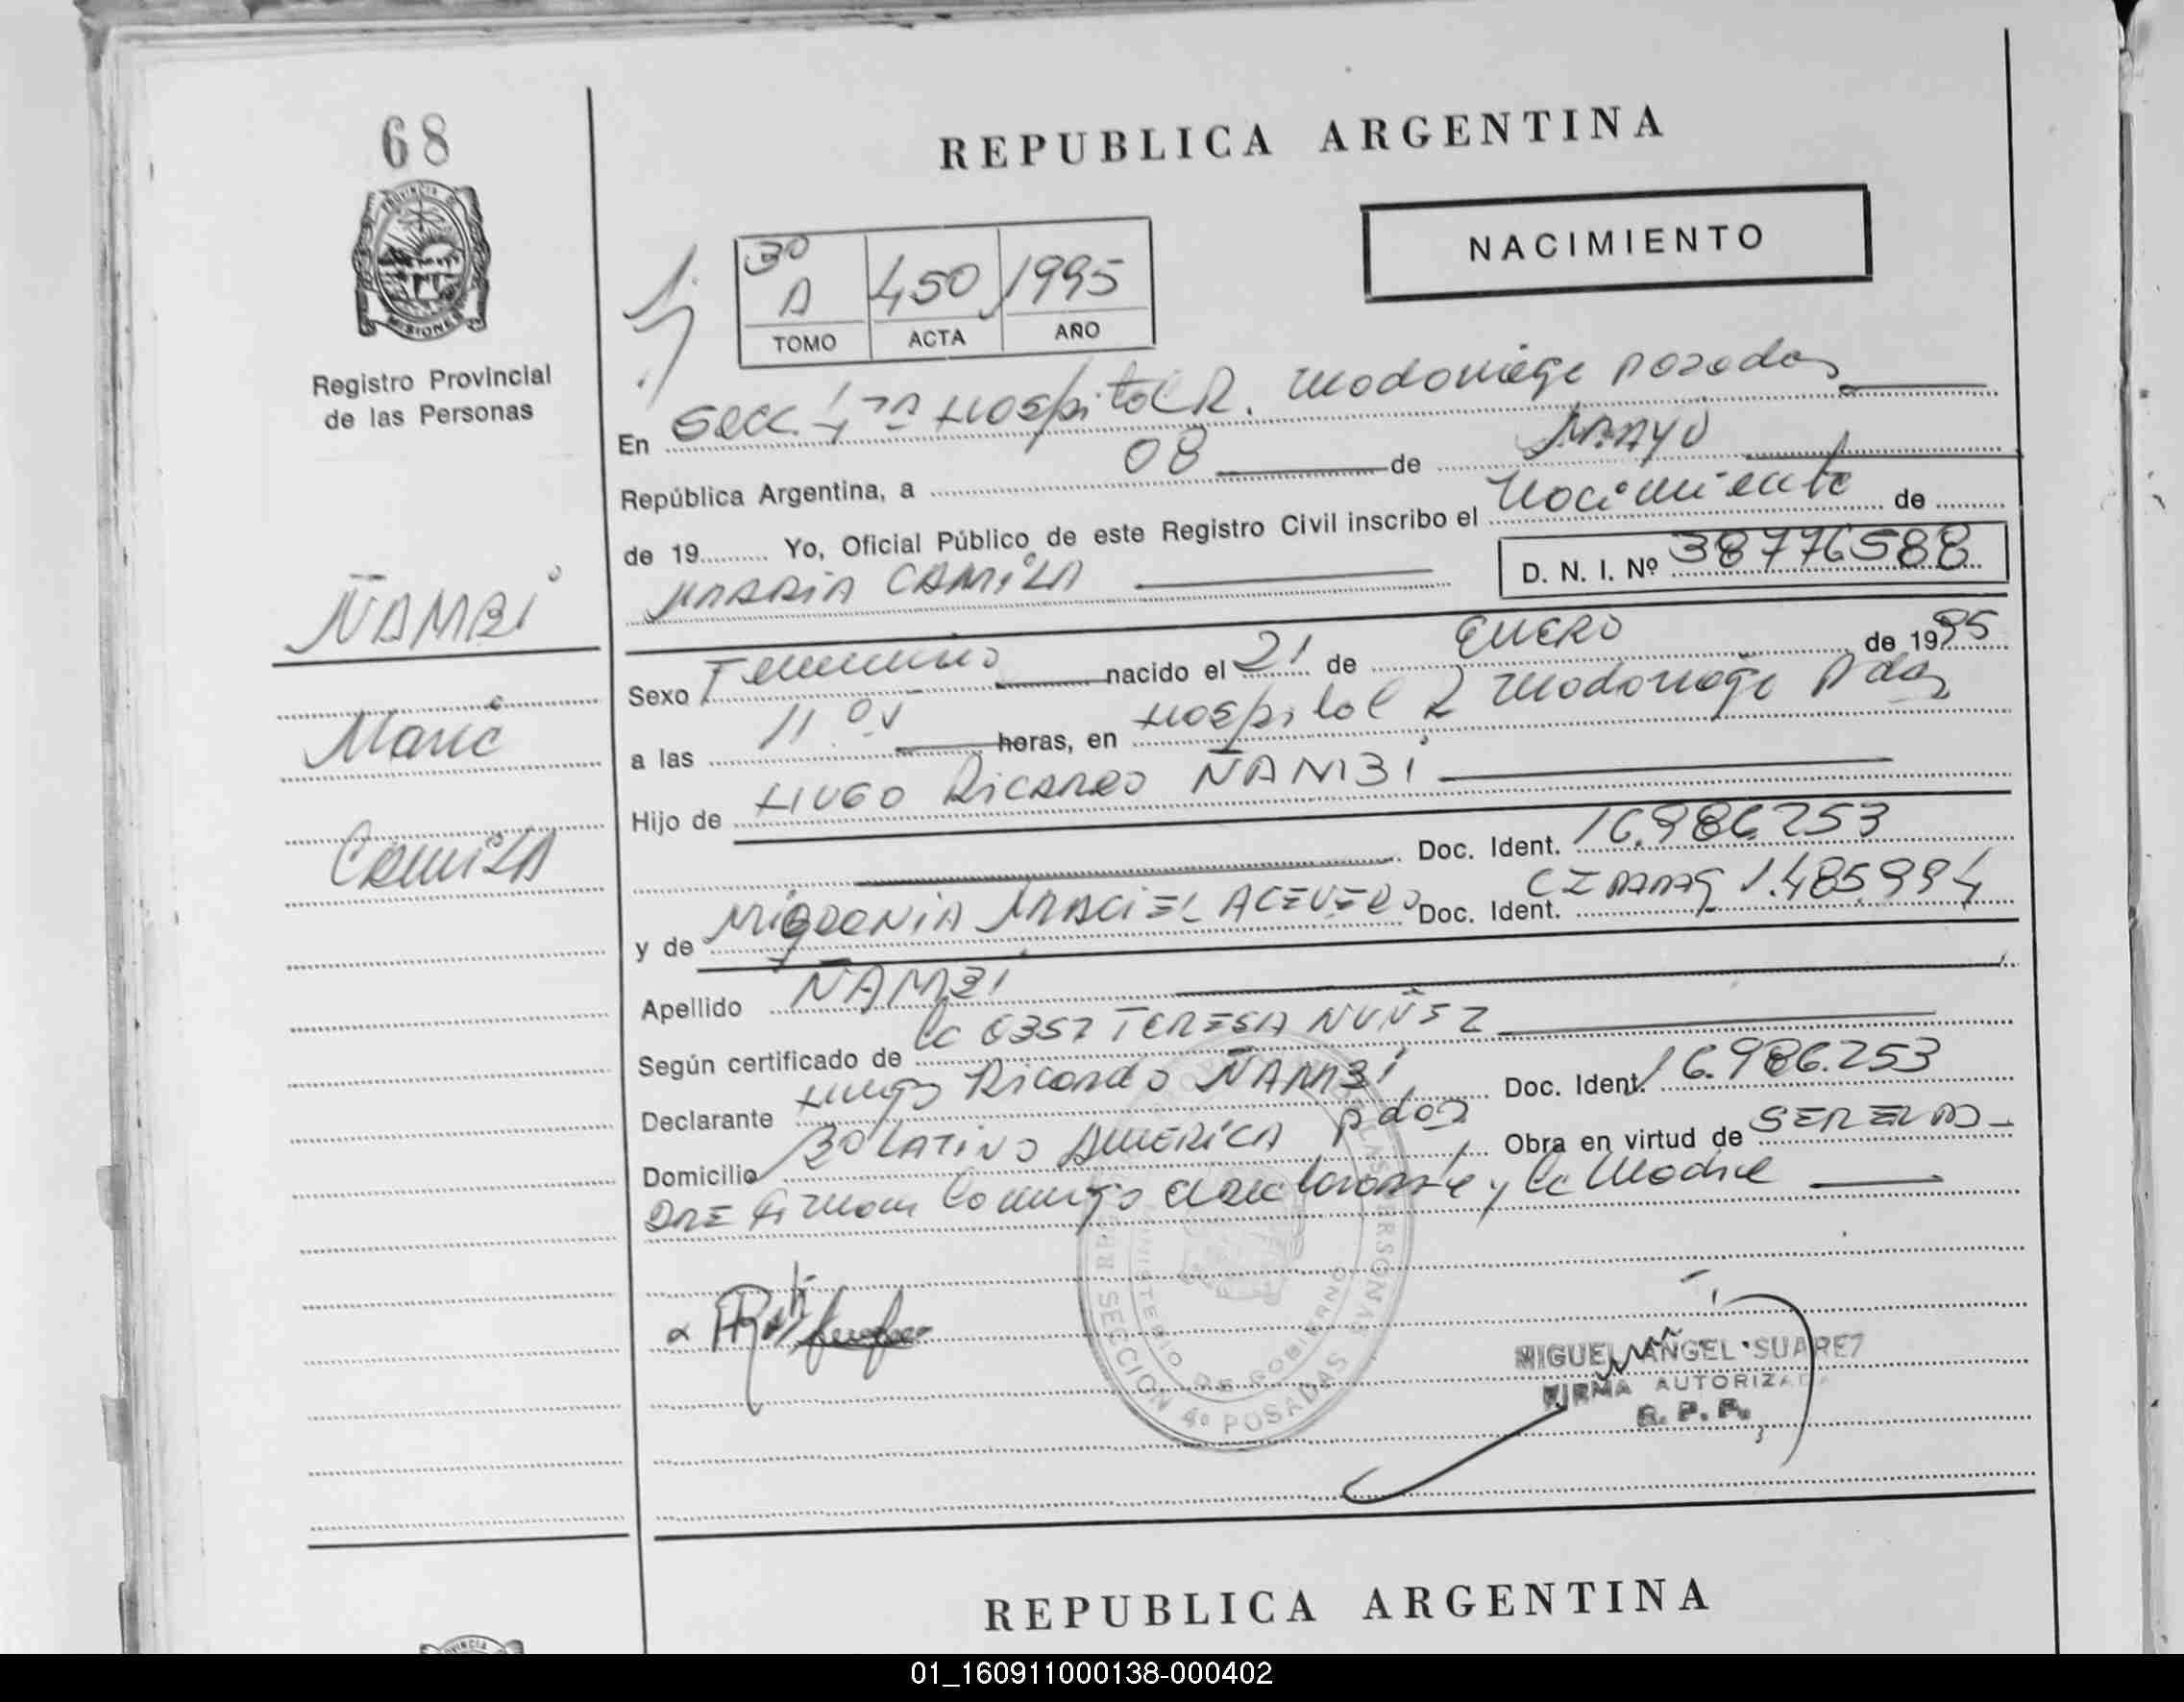 68
REPUBLICA ARGENTINA
PROVINCIA DE
MISIONES
NACIMIENTO
3º
A 450 1995
TOMO ACTA AÑO
Registro Provincial
de las Personas
En Secc. 4ta Hospital R. Madariaga Posadas
República Argentina, a 08 de MAYO
de 19 Yo, Oficial Público de este Registro Civil inscribo el Nacimiento de
MARIA CAMILA D. N. I. Nº 38776588
ÑAMBI
Maria
Camila
Sexo Femenino nacido el 21 de ENERO de 1995
a las 11.05 horas, en Hospital R Madariaga Pdas
Hijo de HUGO RICARDO ÑAMBI
Doc. Ident. 16.986.253
y de MIGDONIA MACIEL ACEVEDO Doc. Ident. 1.485.994
Apellido ÑAMBI
Según certificado de TERESA NUÑEZ
Declarante Hugo Ricardo ÑAMBI Doc. Ident. 16.986.253
Domicilio LATINO AMERICA Pdas Obra en virtud de SER EL PA-
DRE Firman Conmigo declarante y la Madre
MINISTERIO DE GOBIERNO
SECCION 4º POSADAS
MIGUEL ANGEL SUAREZ
FIRMA AUTORIZADA
R. P. P.
REPUBLICA ARGENTINA
PROVINCIA
01_160911000138-000402